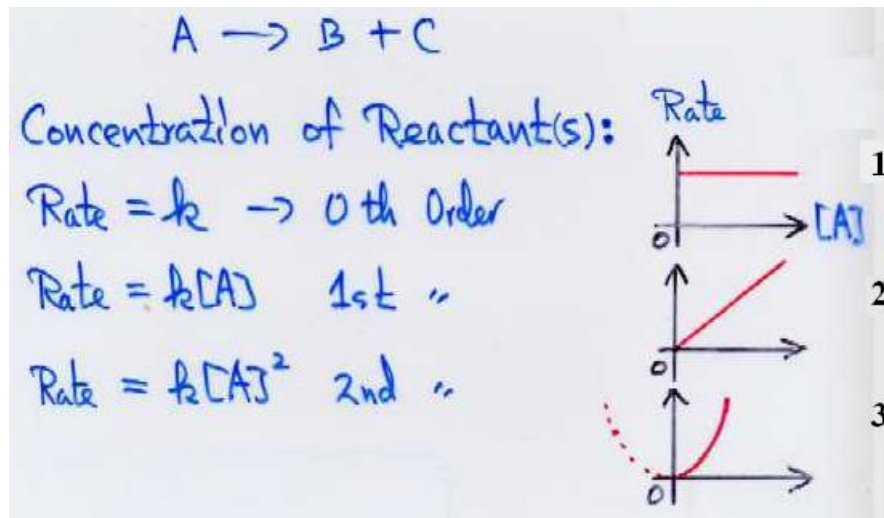 A → B + C
Concentration of Reactant(s):
Rate = k → 0 th Order
Rate = k[A] 1st "
Rate = k[A]² 2nd "
Rate
1
[A]
0
2
0
3
0